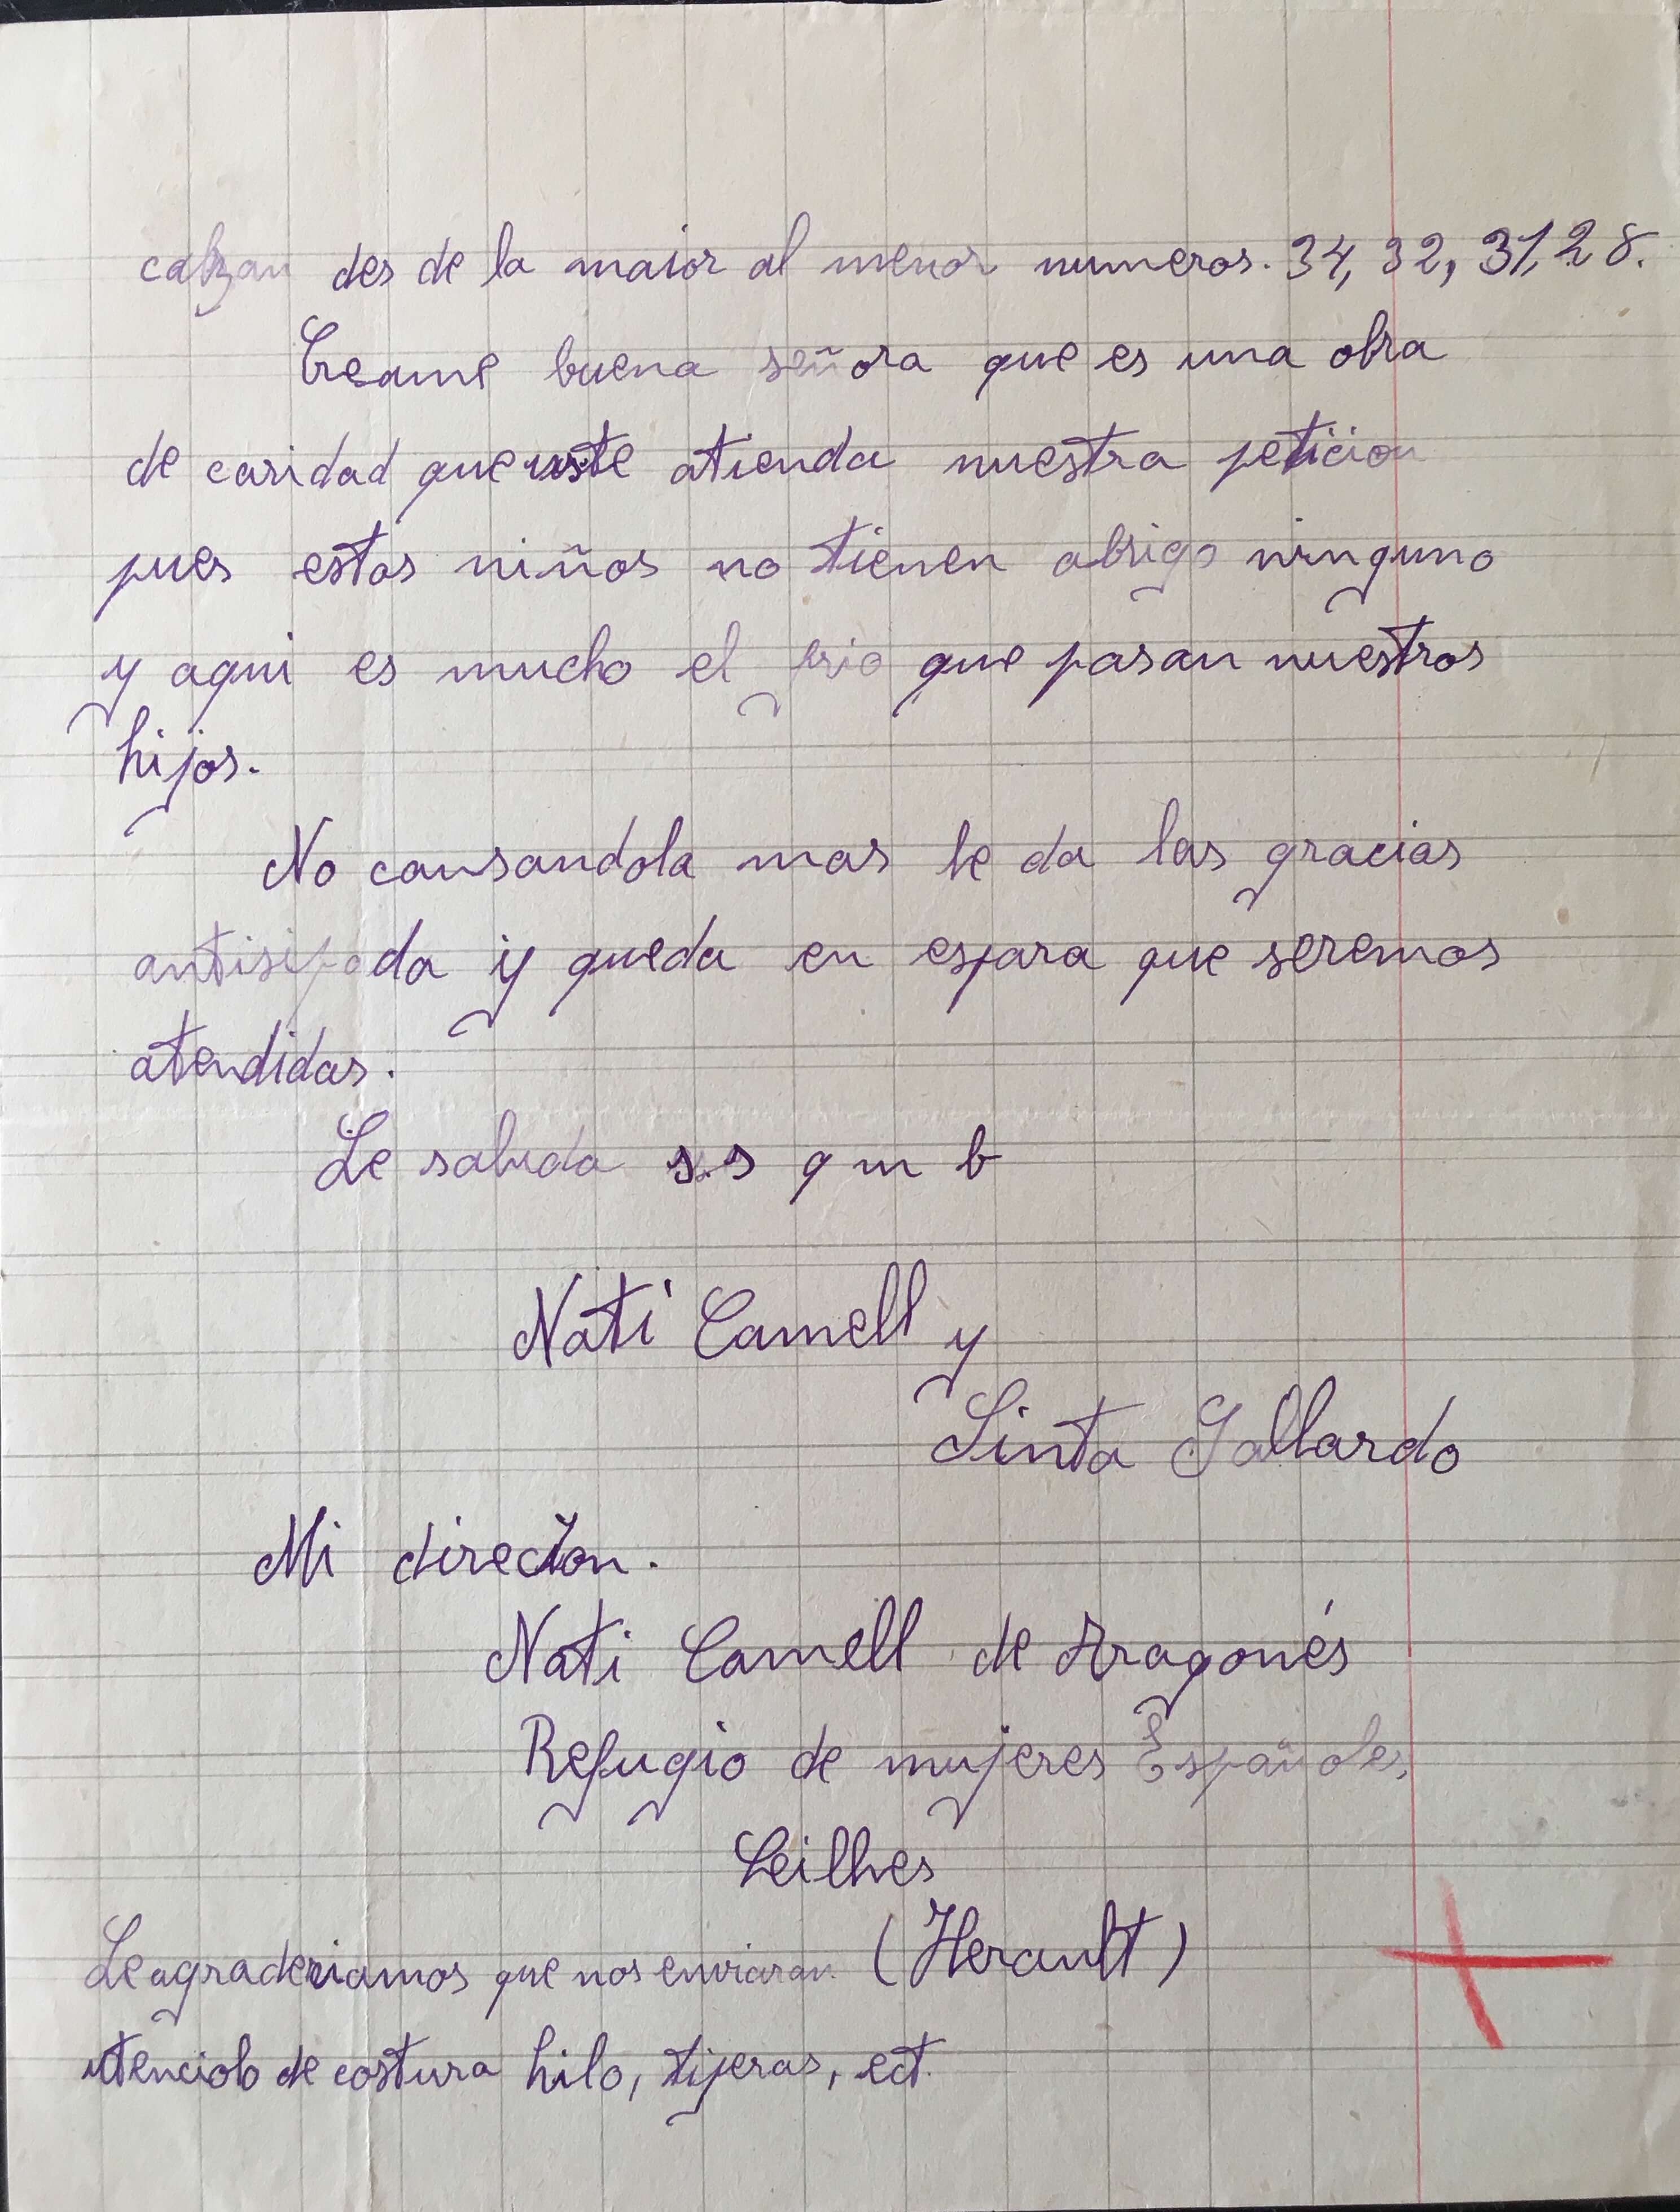 calzan des de la maior al menor numeros. 34, 32, 31, 28.
Creame buena señora que es una obra
de caridad que uste atienda nuestra peticion
pues estos niños no tienen abrigo ninguno
y aqui es mucho el frio que pasan nuestros
hijos.
No cansandola mas le da las gracias
antisipada y queda en espara que seremos
atendidas.
Le saluda s.s q m b
Nati Camell y
Sinta Gallardo
Mi direcion.
Nati Camell de Aragonés
Refugio de mujeres Españoles,
Ceilhes
(Herault)
Le agraderiamos que nos enviaran
utenciolo de costura hilo, tijeras, ect.